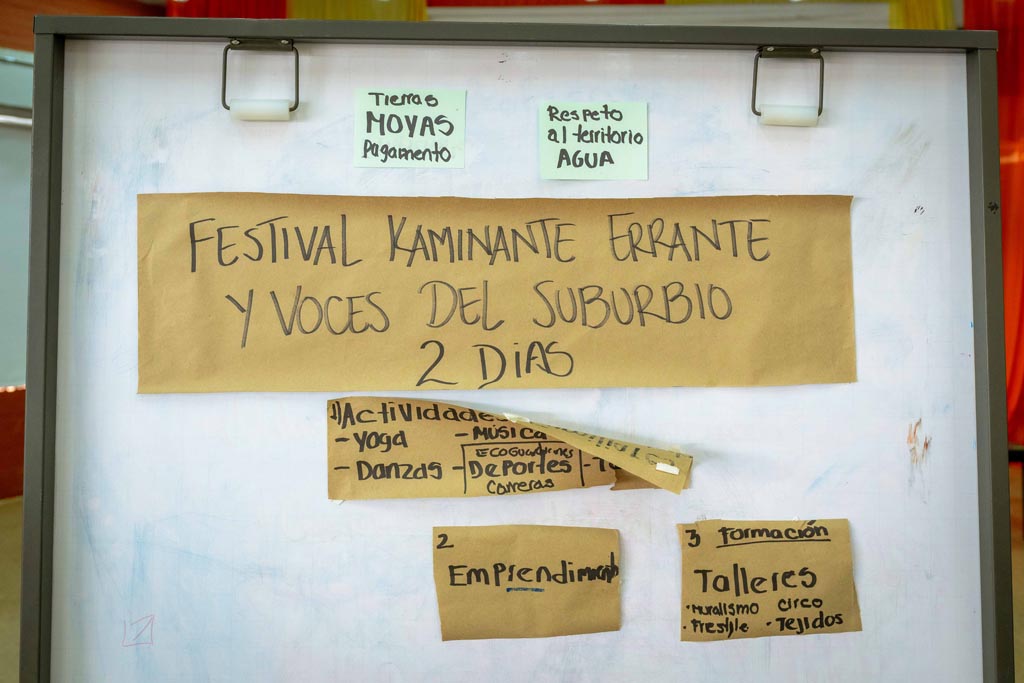 Tierras
MOYAS
pagamento
Respeto
al territorio
AGUA
FESTIVAL KAMINANTE ERRANTE
Y VOCES DEL SUBURBIO
2 DIAS
1) Actividades
- Yoga - MÚSICA
ECOGuardianes
- Danzas - Deportes -
Carreras
2
Emprendimiento
3 Formación
Talleres
• Muralismo circo
• Frestyle • Tejidos
2